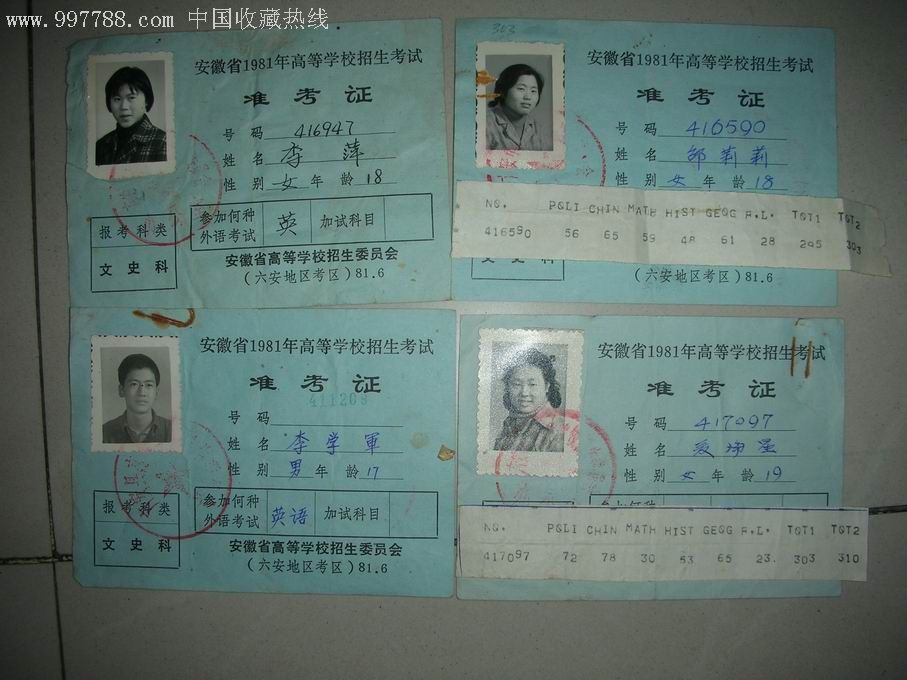 www.997788.com 中国收藏热线
安徽省1981年高等学校招生考试
准考证
号码 416947
姓名 李萍
性别 女 年龄 18
报考科类
文史科
参加何种外语考试 英 加试科目
安徽省高等学校招生委员会
(六安地区考区)81.6
303
安徽省1981年高等学校招生考试
准考证
号码 416590
姓名 邹莉莉
性别 女 年龄 18
NO. POLI CHIN MATH HIST GEOG F.L. TOT1 TOT2
416590 56 65 59 48 61 28 295 303
(六安地区考区)81.6
安徽省1981年高等学校招生考试
准考证
411209
号码
姓名 李学軍
性别 男 年龄 17
报考科类
文史科
参加何种外语考试 英语 加试科目
安徽省高等学校招生委员会
(六安地区考区)81.6
安徽省1981年高等学校招生考试
准考证
号码 417097
姓名
性别 女 年龄 19
NO. POLI CHIN MATH HIST GEOG F.L. TOT1 TOT2
417097 72 78 30 53 65 23. 303 310